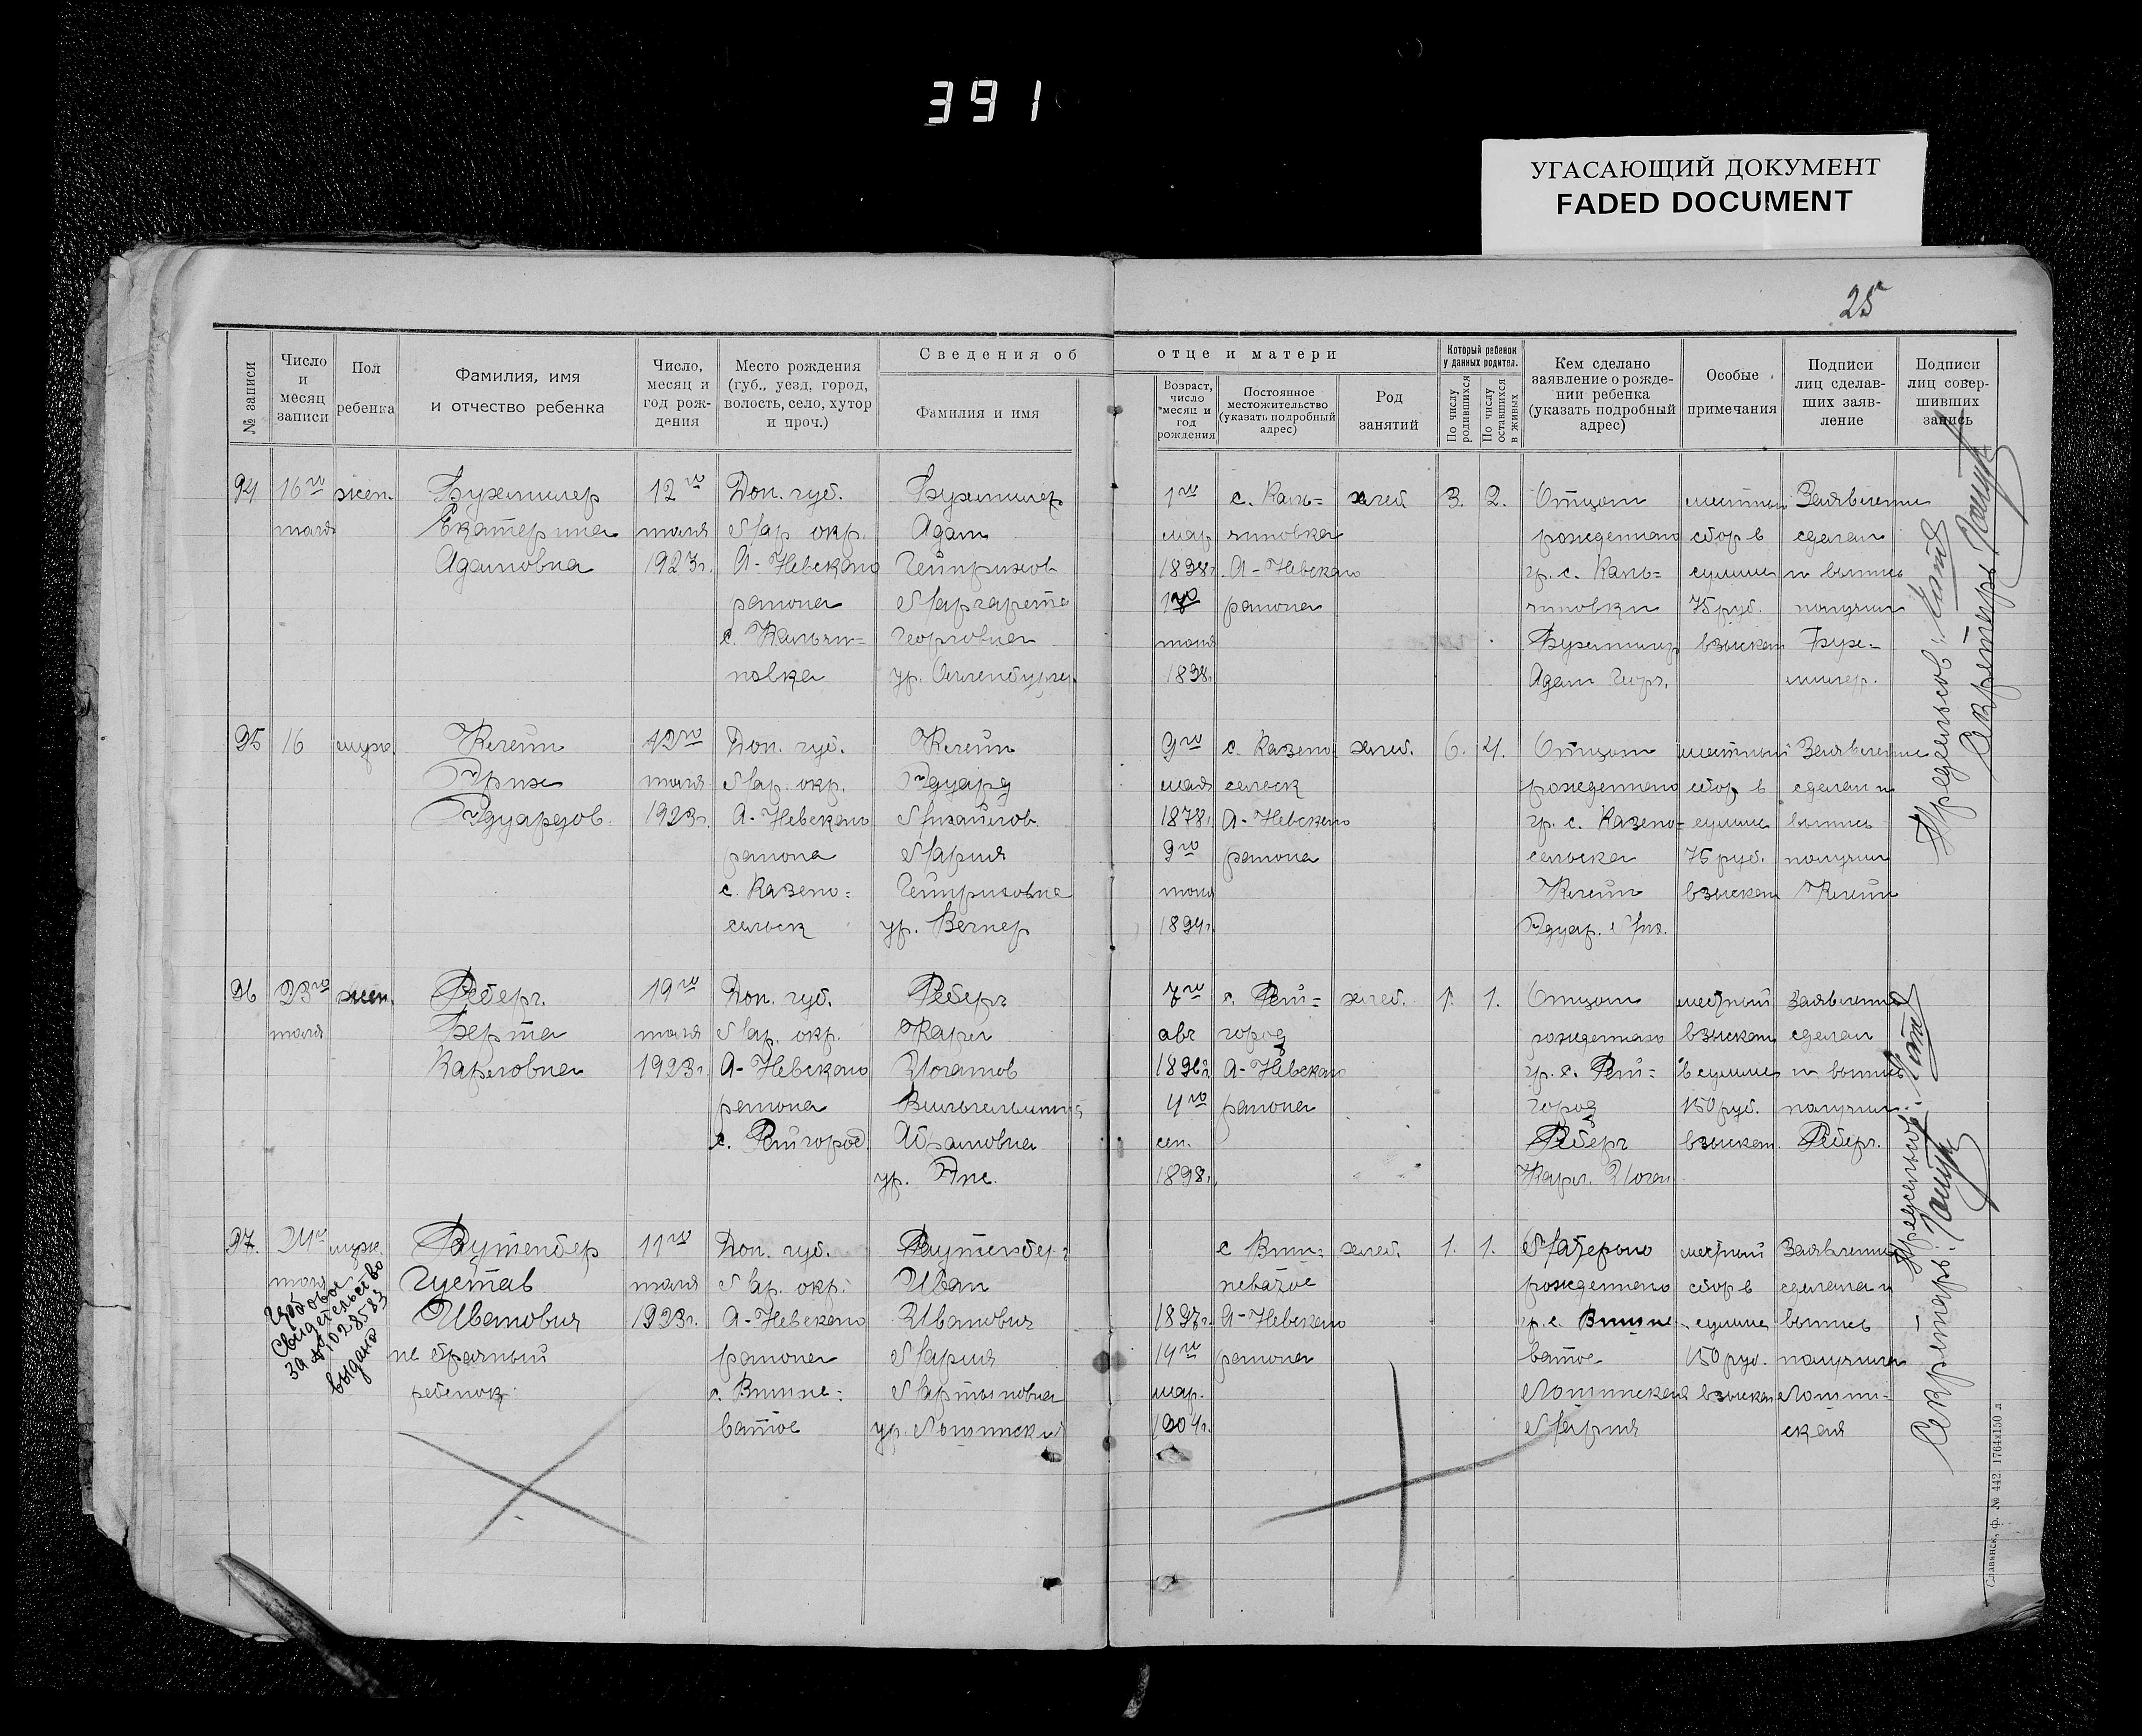 391
УГАСАЮЩИЙ ДОКУМЕНТ
FADED DOCUMENT
25
№ записи
Число и месяц записи
Пол ребенка
Фамилия, имя и отчество ребенка
Число, месяц и год рождения
Место рождения (губ., уезд, город, волость, село, хутор и проч.)
Сведения об отце и матери
Фамилия и имя
Возраст, число месяц и год рождения
Постоянное местожительство (указать подробный адрес)
Род занятий
Который ребенок у данных родител.
По числу родившихся
По числу оставшихся в живых
Кем сделано заявление о рождении ребенка (указать подробный адрес)
Особые примечания
Подписи лиц сделавших заявление
Подписи лиц совершивших запись
94 16го жен. 12го Дон. губ. 1го с. Каль= хлеб 3. 2. Отцом местный Заявление
июля Екатерина июля Мар. окр. Адам мар чиновка рожденного сбор в сделал
Адамовна 1923г. А-Невского Гейнрихов 1898г. А-Невского гр. с. Каль= сумме и выпись
района Маргарета района чиновки 75 руб. получил
с. Кальчи= Георговна июня взыскан
новка ур. 1898г. Адам Георг.
95 16 муж. Клейн 12го Дон. губ. Клейн 9го с. Казено хлеб. 6. 4. Отцом местный Заявление
Эрих июля Мар. окр. Эдуард мая сельск рожденного сбор в сделал и
Эдуардов. 1923г. А-Невского Михайлов. 1878г. А-Невского гр. с. Казено= сумме выпись
района Мария 9го района сельска 75 руб. получил
с. Казено= Гейнриховна июня Клейн взыскан Клейн
сельск ур. Вегнер 1894г. Эдуар. Мих.
96 23го жен. Реберг. 19го Дон. губ. Реберг 7го с. Рей= хлеб. 1. 1. Отцом местный Заявление
июля Берта июля Мар. окр. Карл авг город рожденного взыскан сделал
Карловна 1923г. А-Невского Иоганов 1896г. А-Невского гр. с. Рей= в сумме и выпись
района Вильгельмина 4го района город 150 руб. получил
с. Рейгород. Абрамовна сен. Реберг взыскан. Реберг.
ур. 1898г. Карл. Иоган
97. 24го муж. Рутенбер 11го Дон. губ. с Вини= хлеб. 1. 1. Матерью местный Заявление
июля Густав июля Мар. окр. Иван неватое рожденного сбор в сделала и
Иванович 1923г. А-Невского Иванович 1897г. А-Невского гр. с. Винне сумме выпись
не брачный района Мария 14го района ватое 150 руб. получила
ребенок с. Винне= Мартыновна мар. взыскан
ватое ур. 1904г. Мария ская
свидетельство
за № 1028583
выдано
Секретарь:
Секретарь:
Славянск, ф. № 442. 1764х150 л